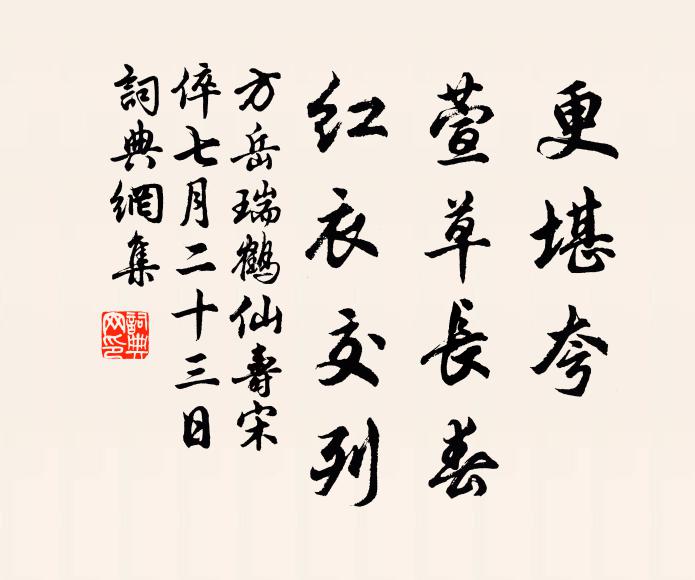 更堪夸
萱草長春
红衣交列
方岳瑞鶴仙壽宋
倅七月二十三日
詞典網集
詞典
网印